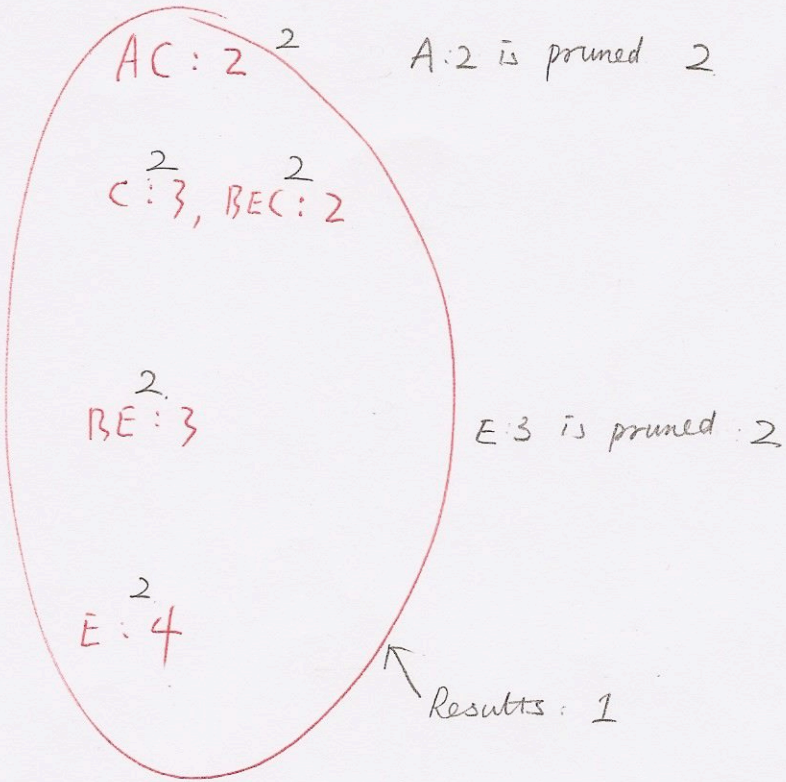 AC : 2 2 A:2 is pruned 2
2 2
C : 3, BEC : 2
2
BE : 3 E:3 is pruned 2
2
E : 4
Results : 1